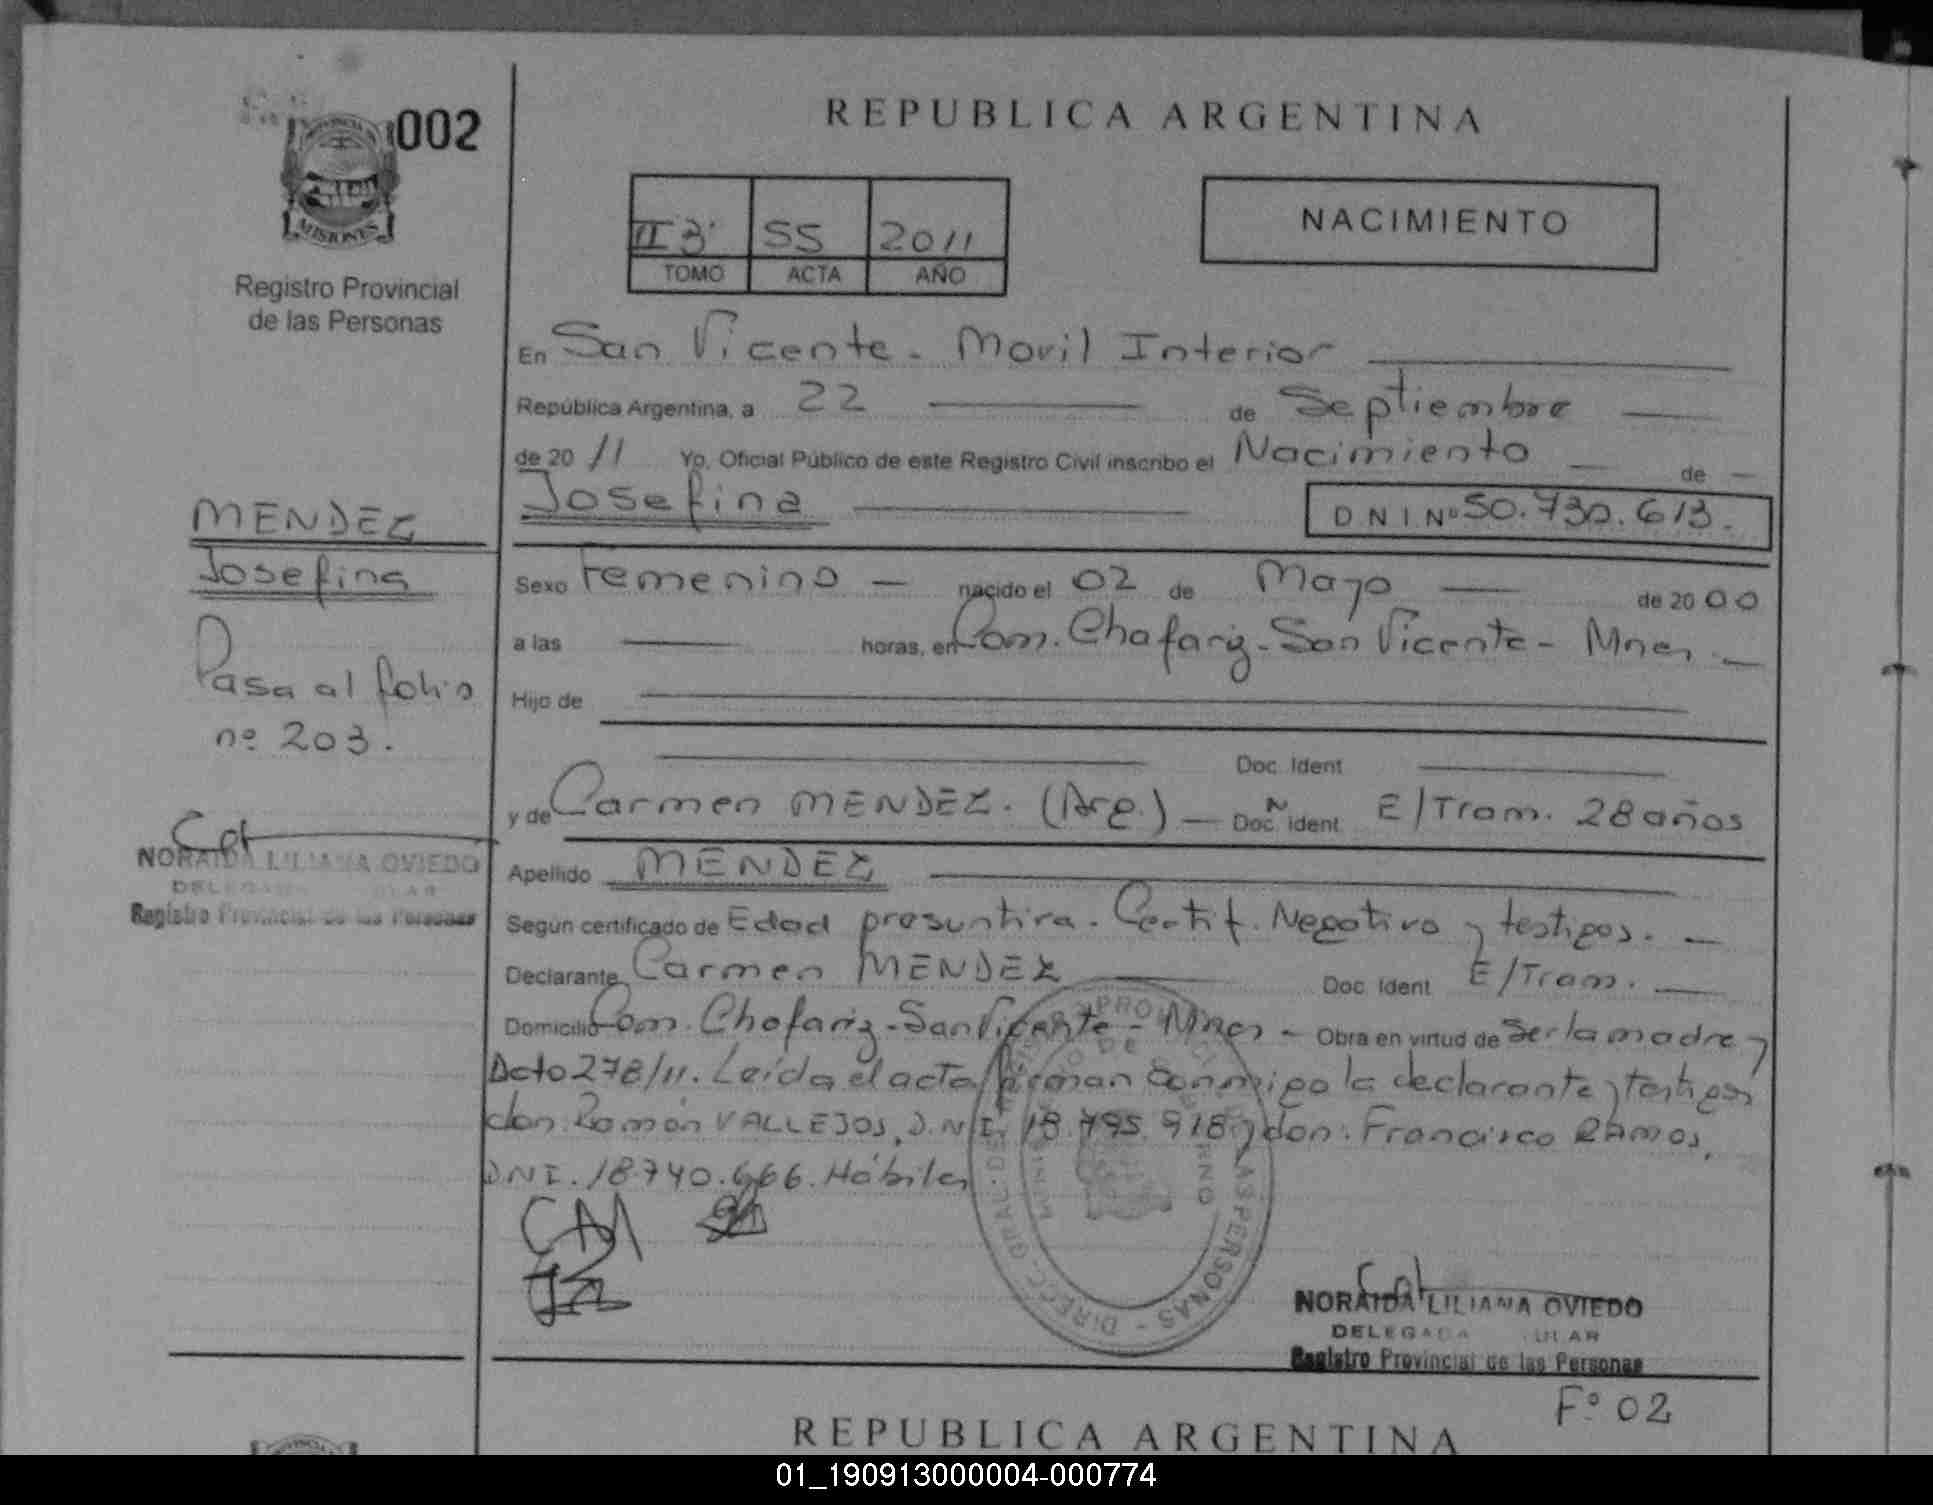 002
PROVINCIA DE
MISIONES
Registro Provincial
de las Personas
MENDEZ
Josefina
Pasa al folio
nº 203.
NORAIDA LILIANA OVIEDO
Registro Provincial de las Personas
REPUBLICA ARGENTINA
SS 2011
TOMO ACTA AÑO
NACIMIENTO
En San Vicente - Movil Interior
República Argentina, a 22 de Septiembre
de 2011 Yo, Oficial Público de este Registro Civil inscribo el Nacimiento de
Josefina DNI Nº 50.730.613.
Sexo Femenino nacido el 02 de Mayo de 2000
a las horas, en Com. Chafariz - San Vicente - Mnes.
Hijo de
Doc. Ident
y de Carmen MENDEZ. (Arg.) Doc. Ident E/Tram. 28 años
Apellido MENDEZ
Según certificado de Edad presuntiva. Certif. Negativo y testigos.
Declarante Carmen MENDEZ Doc. Ident E/Tram.
Domicilio Com. Chafariz - San Vicente - Mnes - Obra en virtud de Ser la madre y
Dcto 278/11. Leída el acta firman conmigo la declarante y testigos
don: Ramón VALLEJOS, D.N.I. 18.795.918 y don: Francisco RAMOS,
DNI. 18.740.666. Hábiles
NORAIDA LILIANA OVIEDO
Registro Provincial de las Personas
Fº 02
REPUBLICA ARGENTINA
01_190913000004-000774